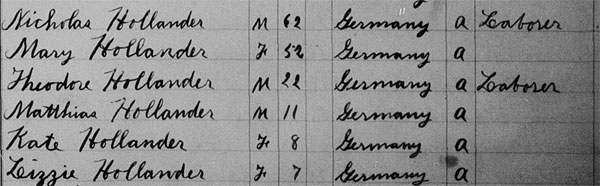 Nicholas Hollander M 62 Germany a Laborer
Mary Hollander F 52 Germany a
Theodore Hollander M 22 Germany a Laborer
Matthias Hollander M 11 Germany a
Kate Hollander F 8 Germany a
Lizzie Hollander F 7 Germany a